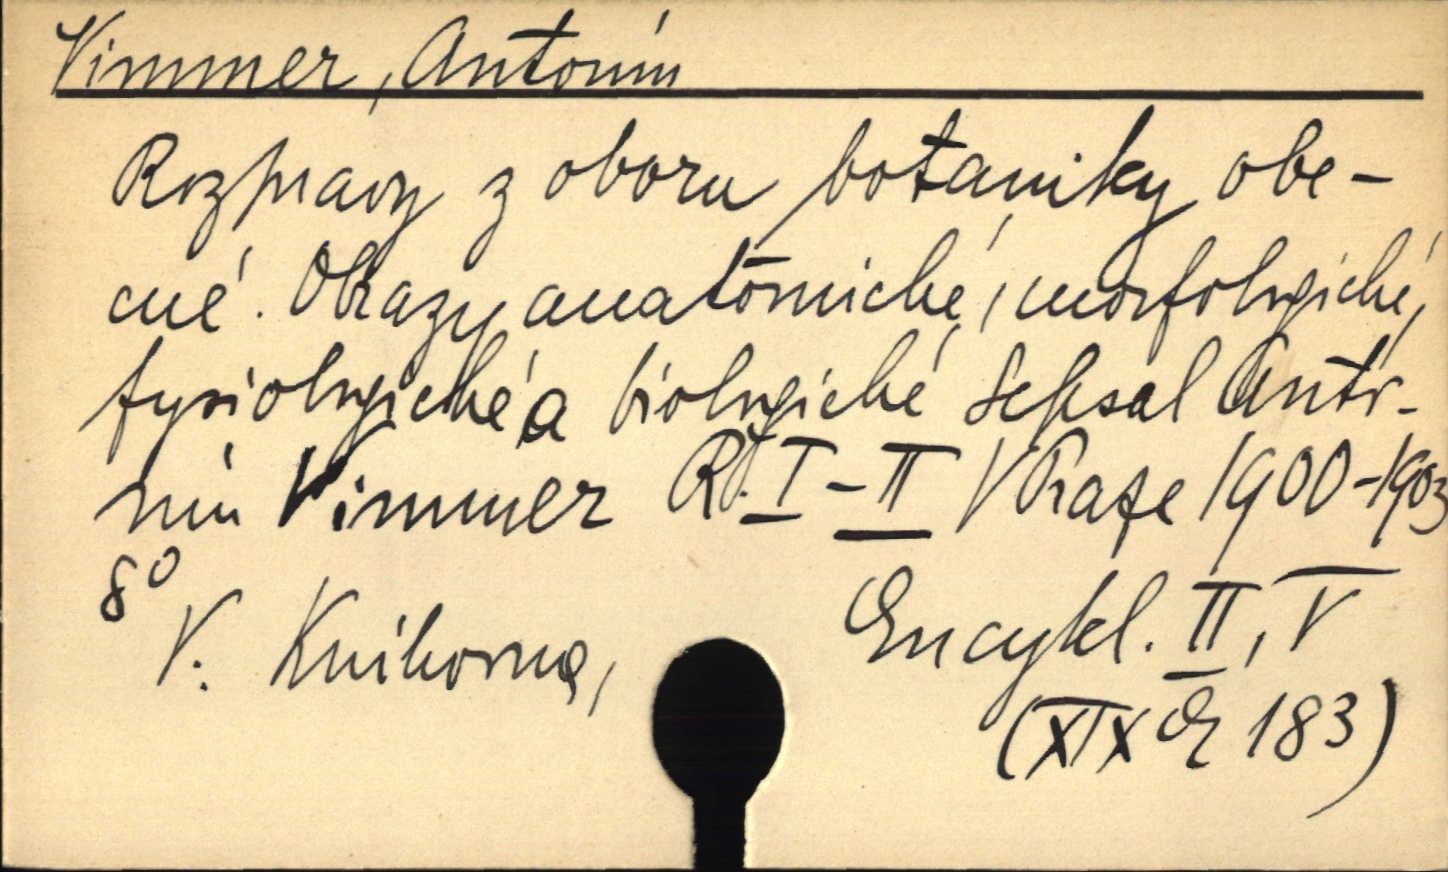 Vimmer, Antonín
Rozpravy z oboru botaniky obe-
cné. Obrazy anatomické, morfologické,
fysiologické a biologické Sepsal Anto-
nín Vimmer I-II V Praze 1900-1903
8°
V. Knihovna, Encykl. II, V
(XIX 183)